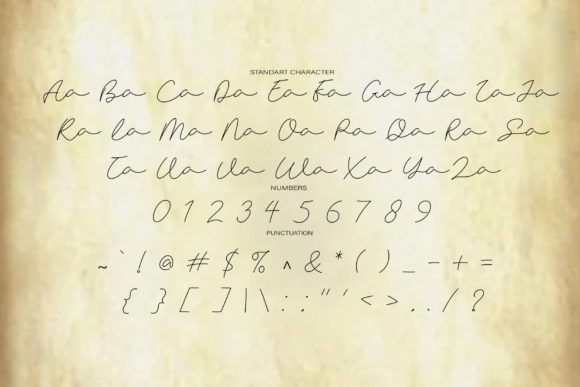 STANDART CHARACTER
Aa Ba Ca Da Ea Fa Ga Ha Ia Ja
Ka La Ma Na Oa Pa Qa Ra Sa
Ta Ua Va Wa Xa Ya Za
NUMBERS
0 1 2 3 4 5 6 7 8 9
PUNCTUATION
~ ` ! @ # $ % ^ & * ( ) _ - + =
{ } [ ] | \ : ; " ' < > , . / ?